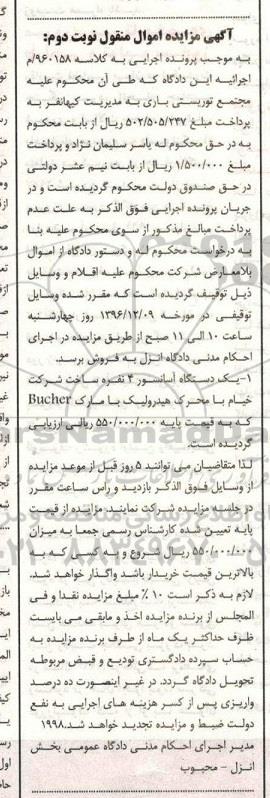 آگهی مزایده اموال منقول نوبت دوم:
به موجب پرونده اجرایی به کلاسه ۹۶۰۱۵۸/م
اجرائیه این دادگاه که طی آن محکوم علیه
مجتمع توریستی باری به مدیریت کیهانفر به
پرداخت مبلغ ۵۰۲/۵۰۵/۲۴۷ ریال از بابت محکوم
به در حق محکوم له یاسر سلیمان نژاد و پرداخت
مبلغ ۱/۵۰۰/۰۰۰ ریال از بابت نیم عشر دولتی
در حق صندوق دولت محکوم گردیده است و در
جریان پرونده اجرایی فوق الذکر به علت عدم
پرداخت مبالغ مذکور از سوی محکوم علیه بنا
به درخواست محکوم له و دستور دادگاه از اموال
بلامعارض شرکت محکوم علیه اقلام و وسایل
ذیل توقیف گردیده است که مقرر شده وسایل
توقیفی در مورخه ۱۳۹۶/۱۲/۰۹ روز چهارشنبه
ساعت ۱۰ الی ۱۱ صبح از طریق مزایده در اجرای
احکام مدنی دادگاه انزل به فروش برسد.
۱-یک دستگاه آسانسور ۴ نفره ساخت شرکت
خیام با محرک هیدرولیک با مارک Bucher
که به قیمت پایه ۵۵۰/۰۰۰/۰۰۰ ریالی ارزیابی
گردیده است.
لذا متقاضیان می توانند ۵ روز قبل از موعد مزایده
از وسایل فوق الذکر بازدید و رأس ساعت مقرر
در جلسه مزایده شرکت نمایند مزایده از قیمت
پایه تعیین شده کارشناس رسمی جمعا به میزان
۵۵۰/۰۰۰/۰۰۰ ریال شروع و به کسی که به
بالاترین قیمت خریدار باشد واگذار خواهد شد.
لازم به ذکر است ۱۰٪ مبلغ مزایده نقدا و فی
المجلس از برنده مزایده اخذ و مابقی می بایست
ظرف حداکثر یک ماه از طرف برنده مزایده به
حساب سپرده دادگستری تودیع و قبض مربوطه
تحویل دادگاه گردد. در غیر اینصورت ده درصد
واریزی پس از کسر هزینه های اجرایی به نفع
دولت ضبط و مزایده تجدید خواهد شد.۱۹۹۸
مدیر اجرای احکام مدنی دادگاه عمومی بخش
انزل - محبوب